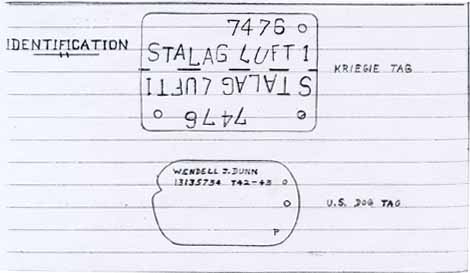 7476
IDENTIFICATION
STALAG LUFT 1
KRIEGIE TAG
STALAG LUFT 1
7476
WENDELL J. DUNN
13135734 T42-43
U.S. DOG TAG
P